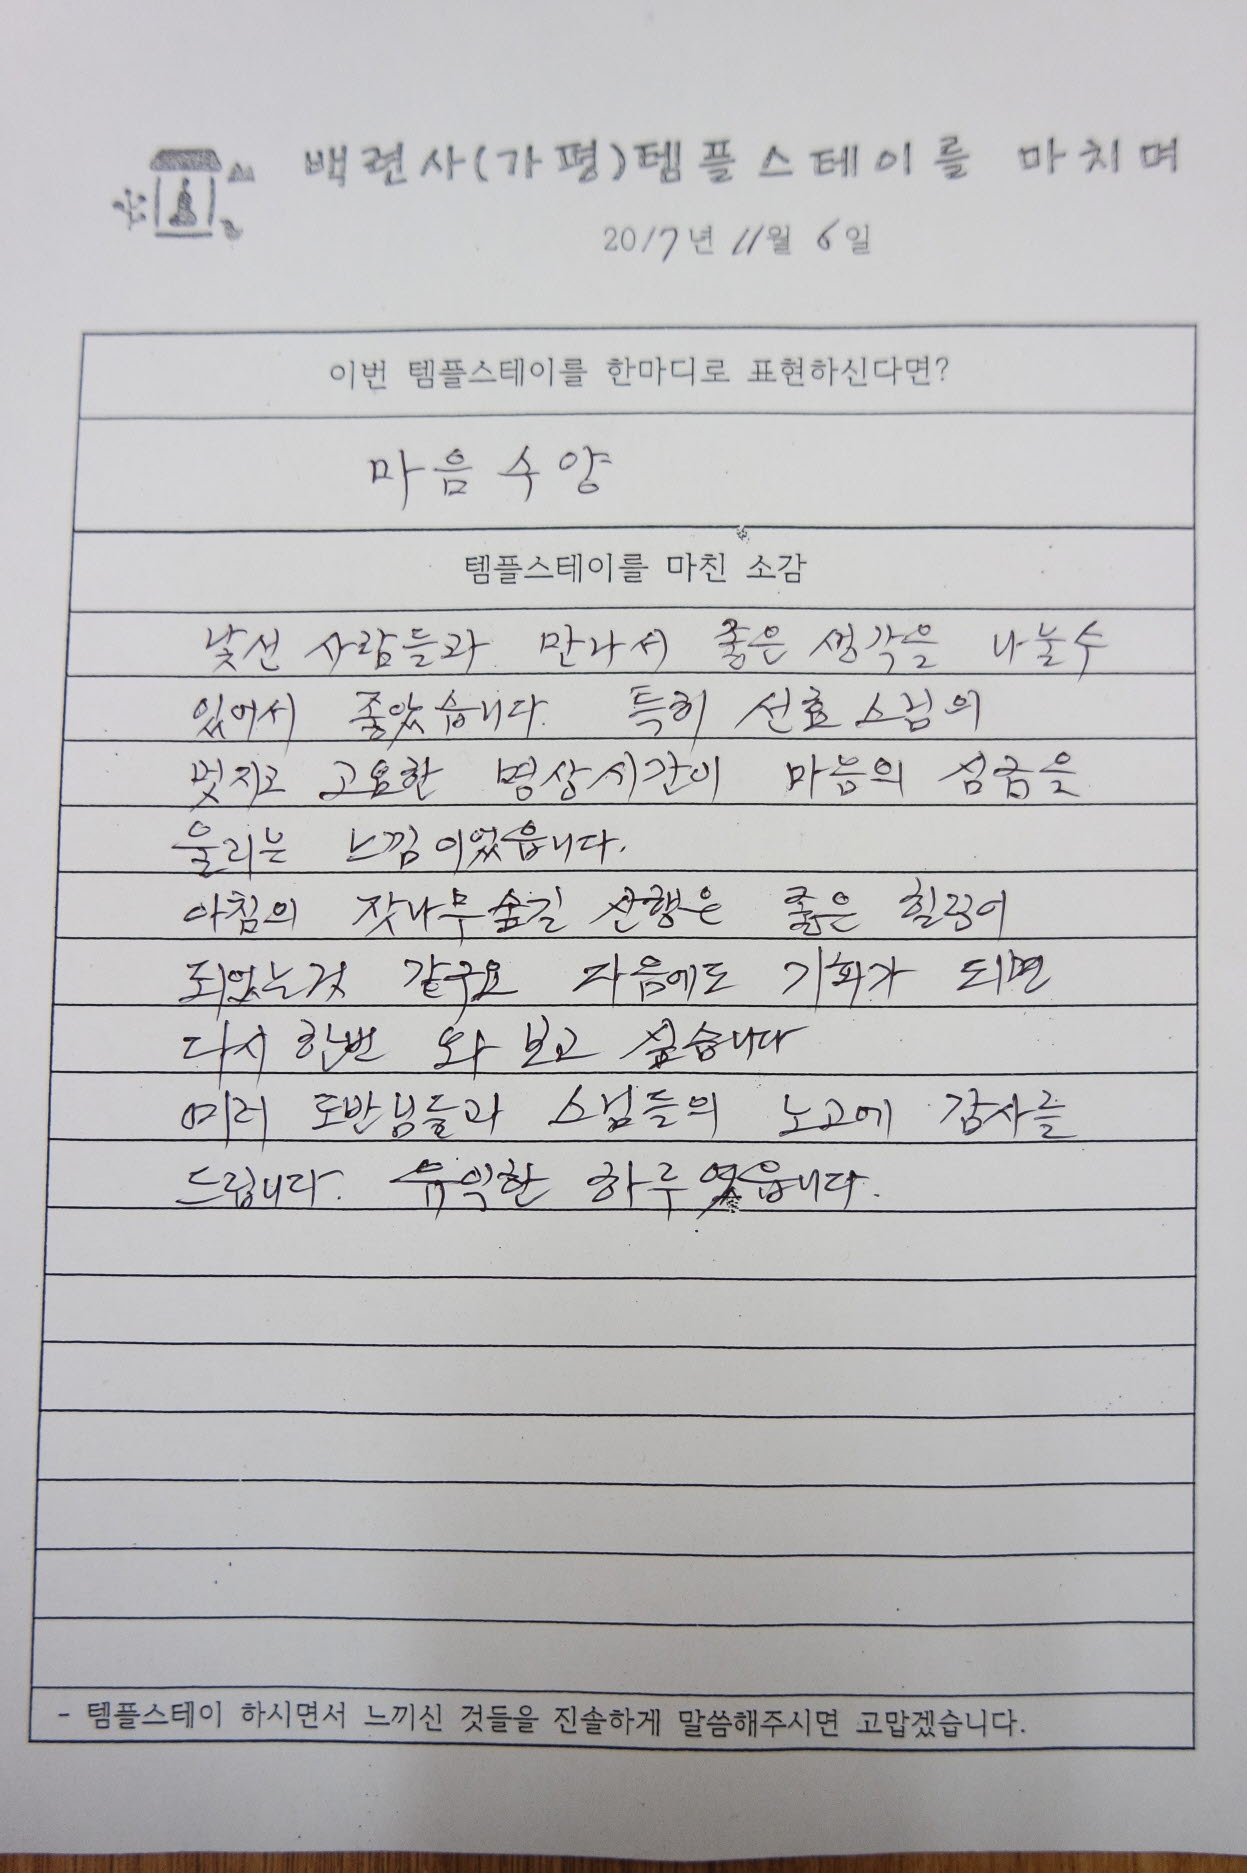 백련사(가평)템플스테이를 마치며
2017년 11월 6일
이번 템플스테이를 한마디로 표현하신다면?
마음수양
템플스테이를 마친 소감
낯선 사람들과 만나서 좋은 생각을 나눌수
있어서 좋았습니다. 특히 선효 스님의
멋지고 고요한 명상시간이 마음의 심금을
울리는 느낌이었읍니다.
아침의 잣나무숲길 산행은 좋은 힐링이
되었는것 같구요 다음에도 기회가 되면
다시 한번 와 보고 싶습니다
여러 도반님들과 스님들의 노고에 감사를
드립니다. 유익한 하루였읍니다.
- 템플스테이 하시면서 느끼신 것들을 진솔하게 말씀해주시면 고맙겠습니다.